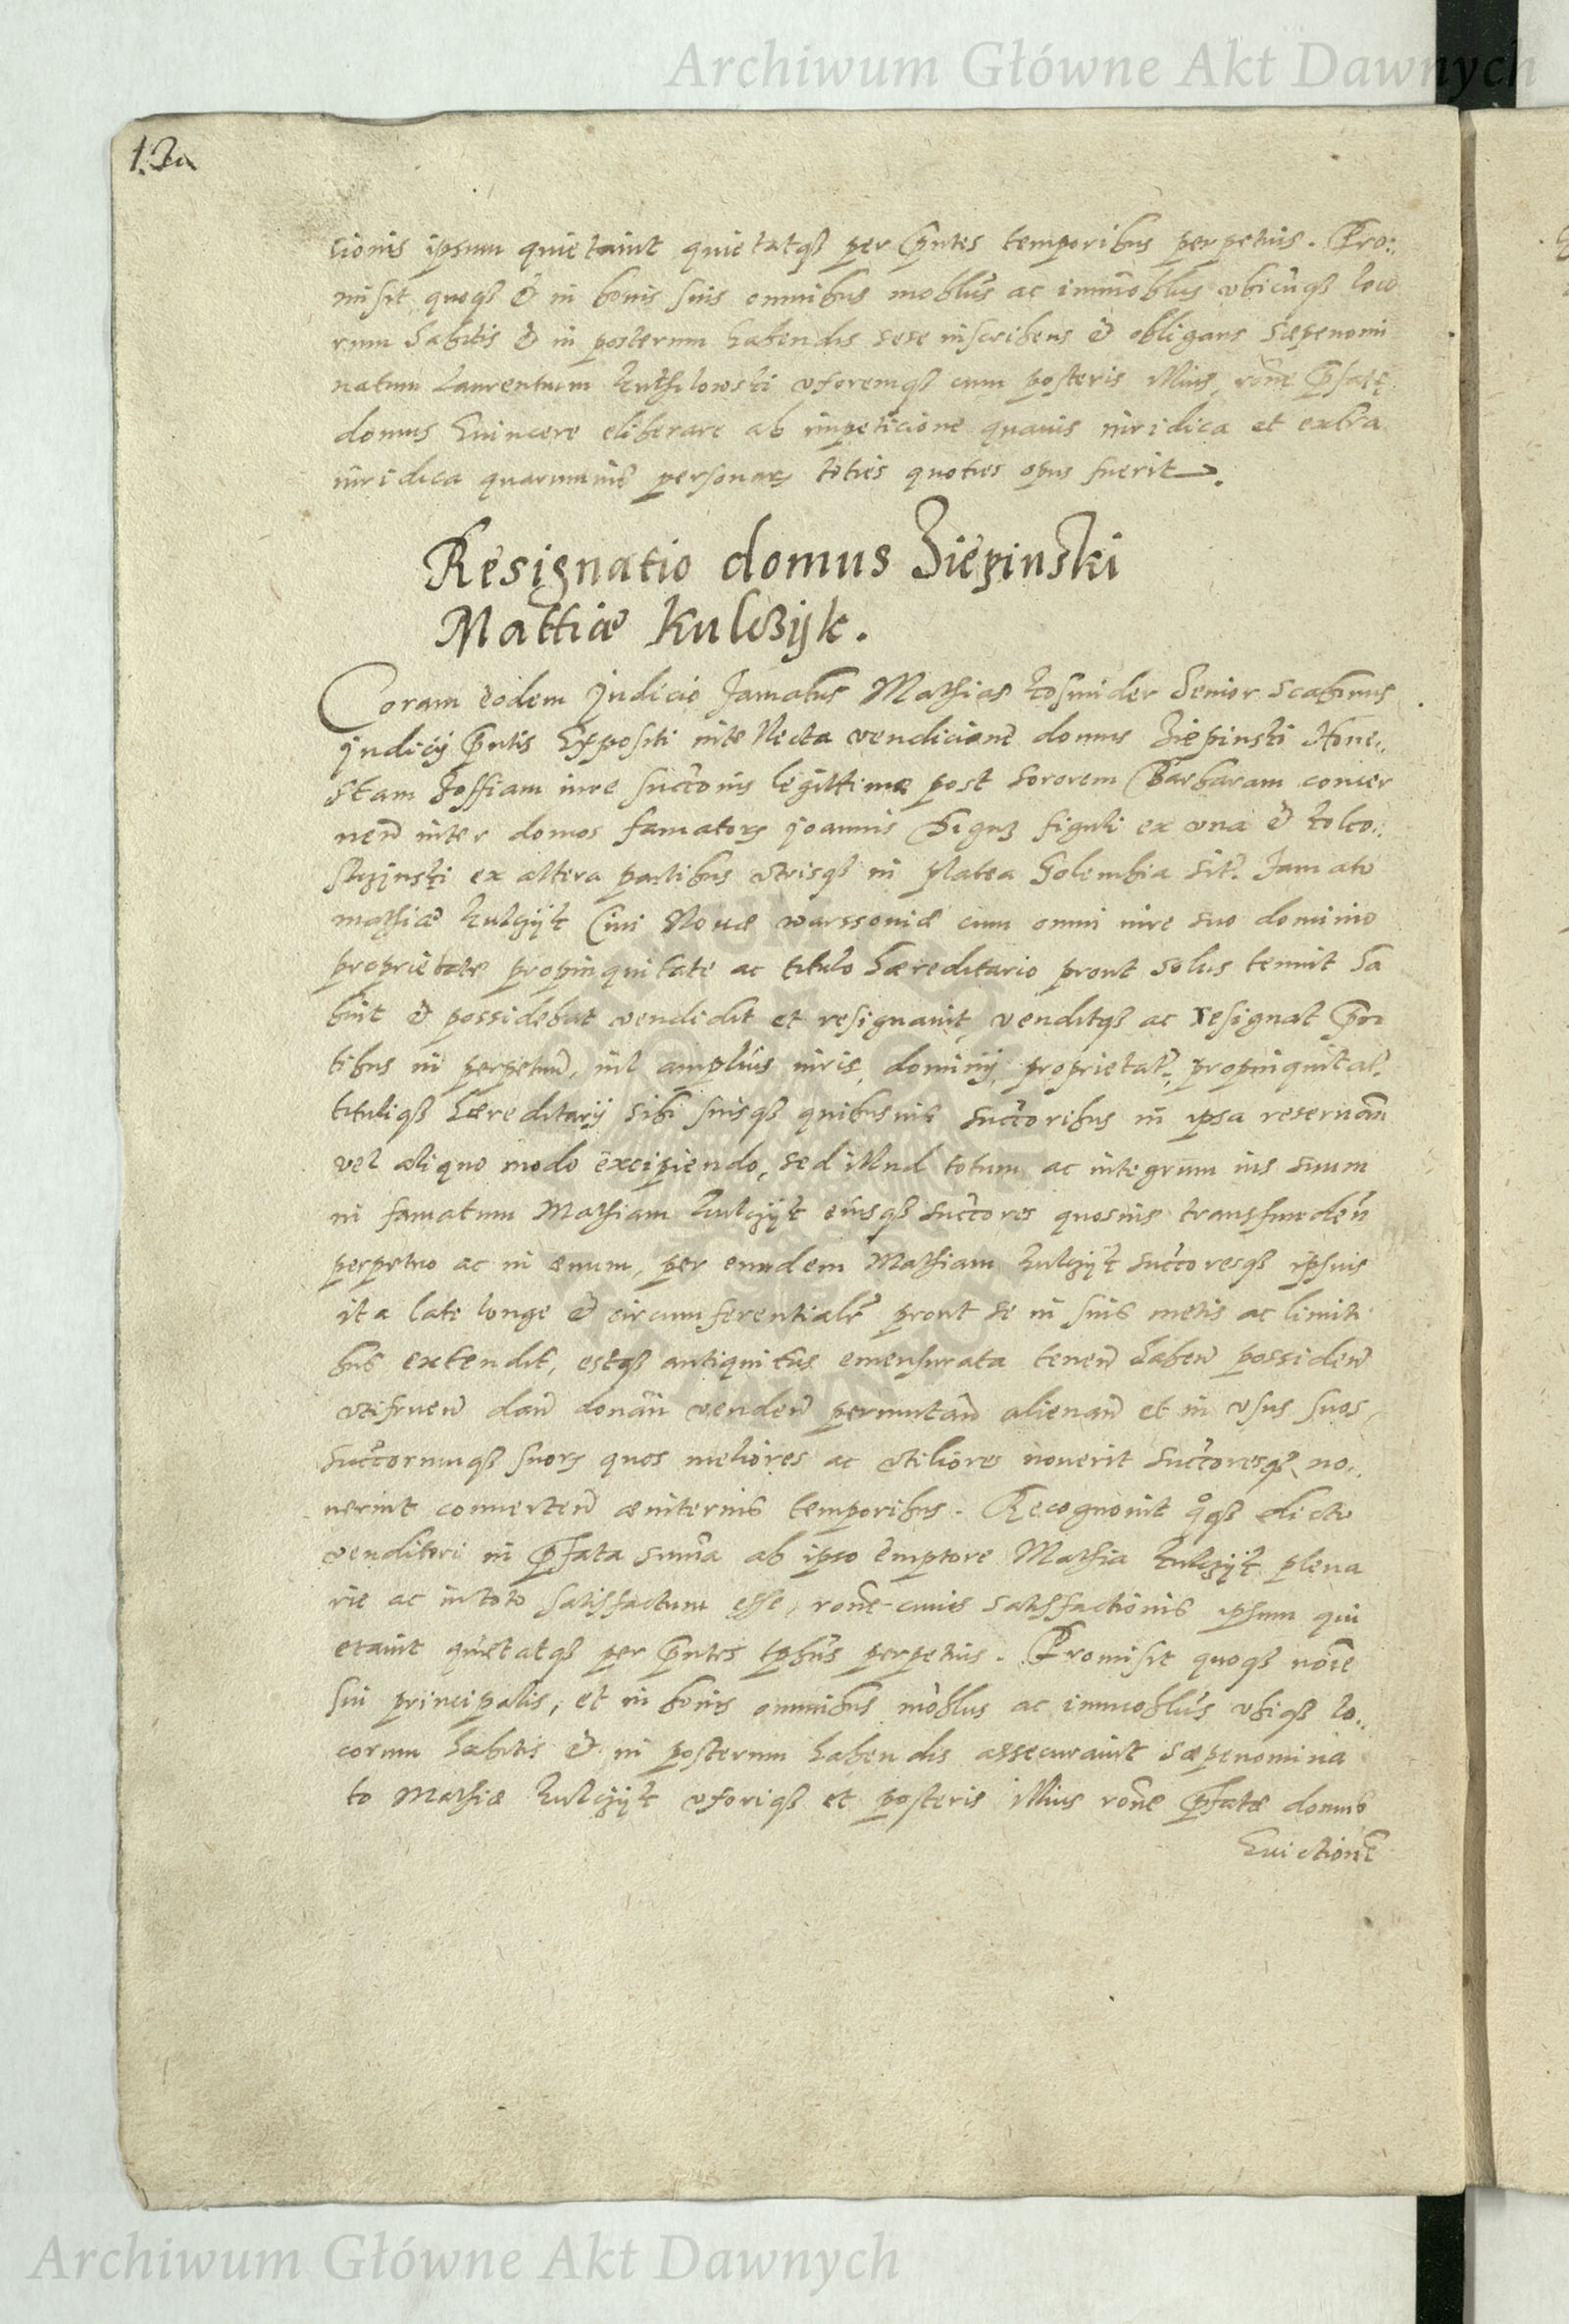 Archiwum Główne Akt Dawnych
cionis ipsum quietauit quietatqȝ per pn̄tes temporibus perpetuis. Pro:,
misit quoqȝ & in bonis suis omnibus moblūs ac immōblus vbicūqȝ loco
rum habitis & in posterum habendis sese inscribens & obligans sæpenomi
natum Laurentium vxoremqȝ cum posteris illius, rōne p̄fatę
domus Euincere eliberare ab impeticione quauis iuridica et extra
iuridica quarumuis̄ personarȝ toties quoties opus fuerit.
Resignatio domus Ziępinski
Mattiæ Kulczijk.
Coram eodem Judicio famatus Mathias Kosmider Senior Scabinus
Judicij pn̄tis Expositi intellecta vendicionē domus Ziępinski Hone:,
stam Zoffiam iure succōnis legittimæ post sororem Barbaram concer
nen̄ inter domos famatorȝ Joannis figuli ex vna & Kolco:,
ex altera partibus vtrisqȝ in platea Golembia sit. famato
Mathiæ Kulczijk Ciui Nouæ Warssouiæ cum omni iure suo dominio
proprietate propinquitate ac titulo hæreditario prout solus tenuit ha
buit & possidebat vendidit et resignauit, venditqȝ ac resignat pn̄
tibus in perpetuū, nil amplius iuris, dominij, proprietat., propinquitat.
tituliqȝ hæreditarij sibi suisqȝ quibusuis succ̄oribus in ipsa reseruan̄
vel aliquo modo excipiendo, sed illud totum ac integrum ius suum
in famatum Mathiam Kulczijk eiusqȝ succ̄ores quosuis transfunden̄
perpetuo ac in æuum, per eundem Mathiam Kulczijk succ̄oresqȝ ipsius
ita late longe & circumferentialr̄ prout se in suis metis ac limiti
bus extendit, estqȝ antiquitus emensurata tenen̄ haben̄ possiden̄
vtifruen̄ dan̄ donan̄ venden̄ permutan̄ alienan̄ et in vsus suos,
succ̄orumqȝ suorȝ quos meliores ac vtiliores nouerit succ̄oresqȝ no:,
uerint conuerten̄ æuiternis temporibus. Recognouit qͦqȝ dicto
venditori in p̄fata summ̄a ab ipso emptore Mathia Kulczijk plena
rie ac in toto satisfactum esse, rōne cuius satisfactionis ipsum qui
etauit quietatqȝ per pn̄tes tp̄bus perpetuis. Promisit quoqȝ nōie
sui principalis, et in bonis omnibus mōblus ac immoblus vbiqȝ lo:,
corum habitis & in posterum habendis assecurauit sæpenomina
to Mathiæ Kulczijk vxoriqȝ et posteris illius rōne p̄fatæ domus
Euictionē
Archiwum Główne Akt Dawnych